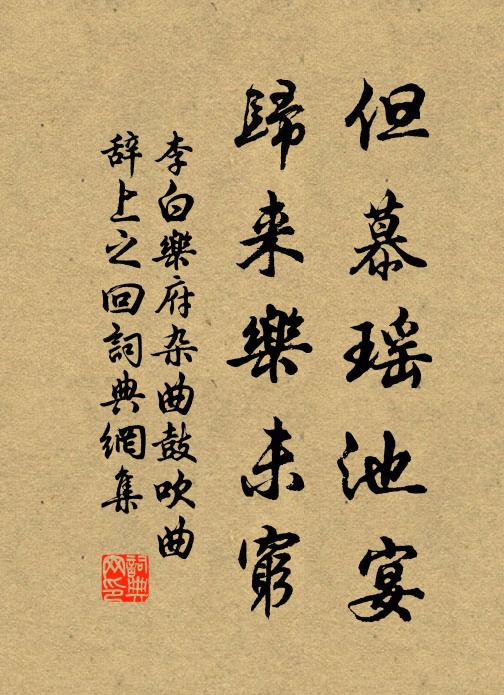 但慕瑶池宴
歸来樂未窮
李白樂府杂曲鼓吹曲
辞上之回詞典網集
詞典网印